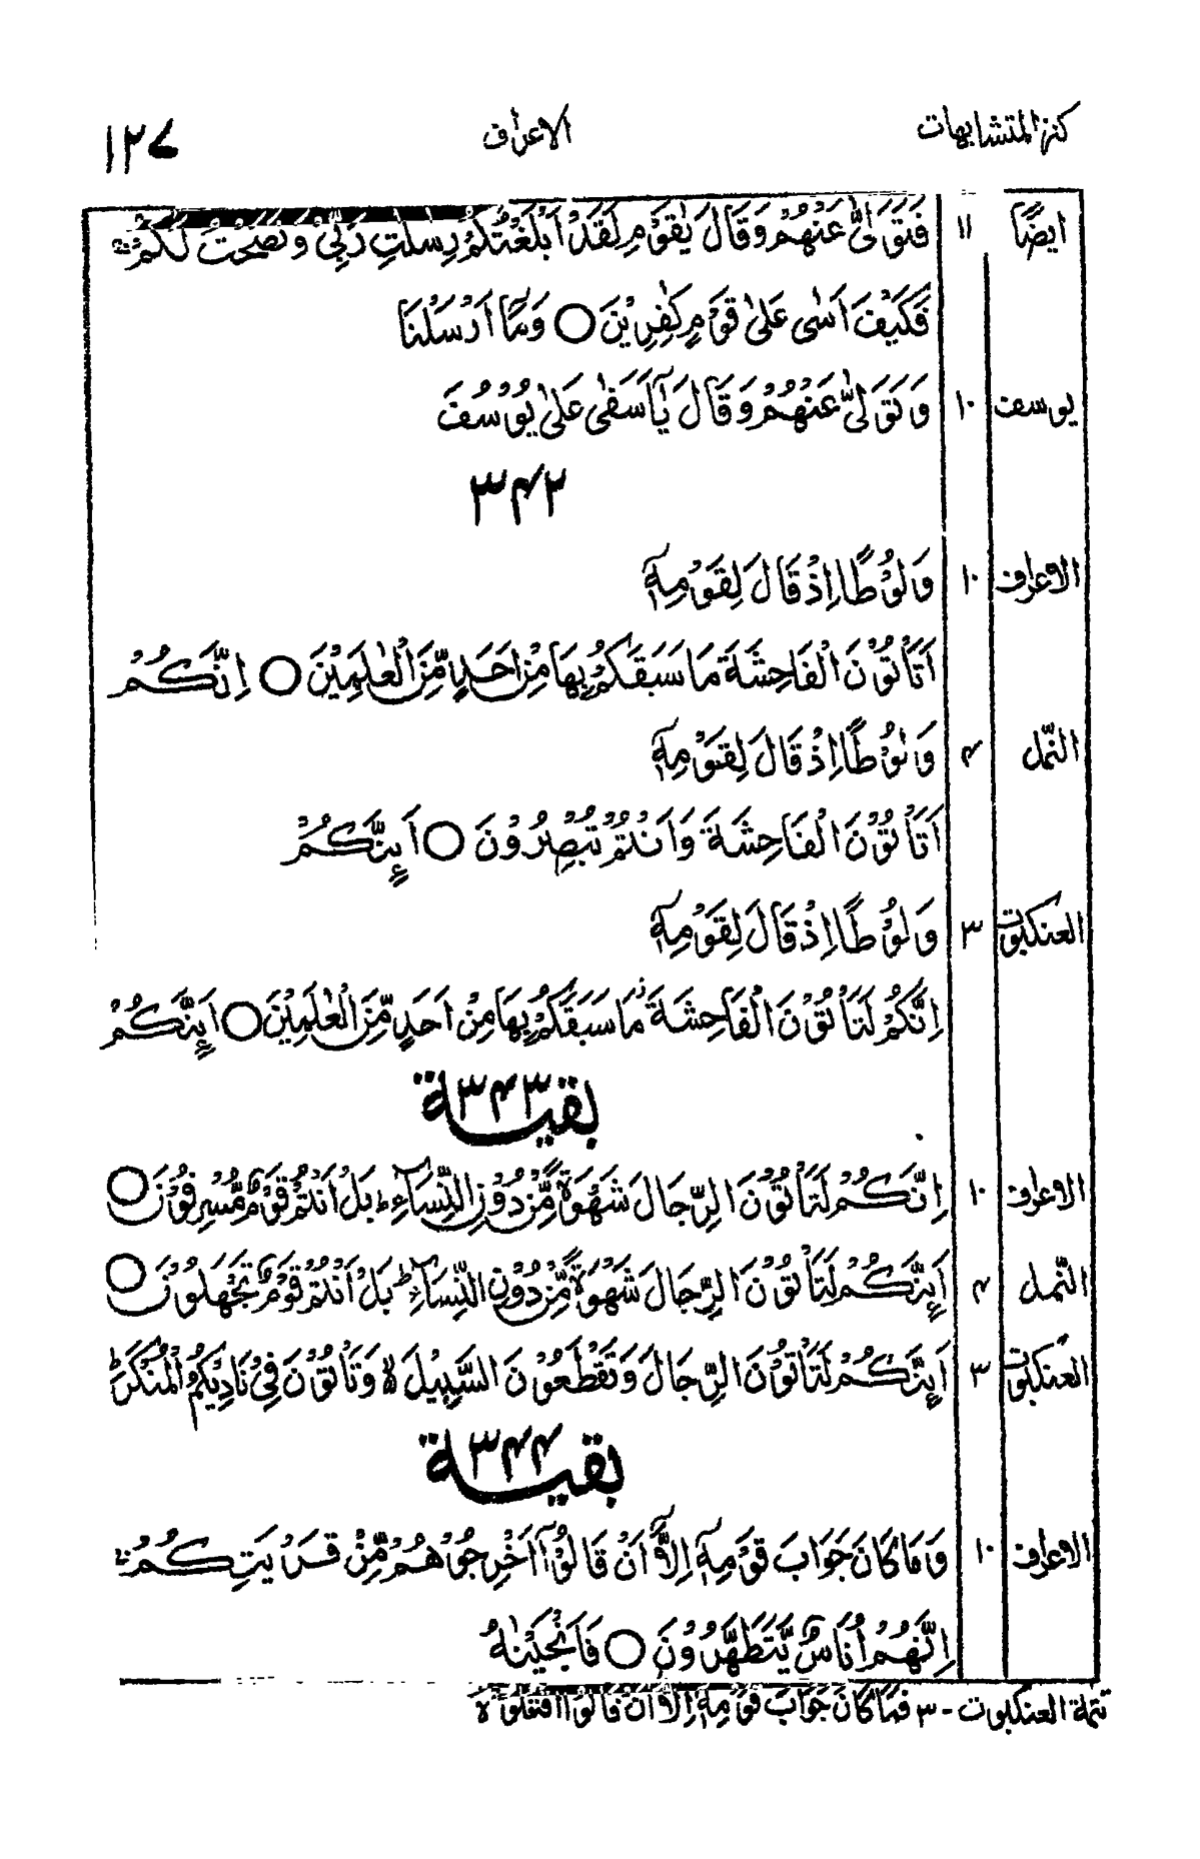 كنز المتشابهات الاعراف ١٢٧
ايضًا ١١ فَتَوَلّٰى عَنْهُمْ وَقَالَ يٰقَوْمِ لَقَدْ اَبْلَغْتُكُمْ رِسٰلٰتِ رَبِّيْ وَنَصَحْتُ لَكُمْ ۚ
فَكَيْفَ اٰسٰى عَلٰى قَوْمٍ كٰفِرِيْنَ ○ وَمَآ اَرْسَلْنَا
يوسف ١٠ وَتَوَلّٰى عَنْهُمْ وَقَالَ يٰٓاَسَفٰى عَلٰى يُوْسُفَ
٣٤٢
الاعراف ١٠ وَلُوْطًا اِذْ قَالَ لِقَوْمِهٖٓ
اَتَاْتُوْنَ الْفَاحِشَةَ مَا سَبَقَكُمْ بِهَا مِنْ اَحَدٍ مِّنَ الْعٰلَمِيْنَ ○ اِنَّكُمْ
النّمل ٤ وَلُوْطًا اِذْ قَالَ لِقَوْمِهٖٓ
اَتَاْتُوْنَ الْفَاحِشَةَ وَاَنْتُمْ تُبْصِرُوْنَ ○ اَئِنَّكُمْ
العنكبوت ٣ وَلُوْطًا اِذْ قَالَ لِقَوْمِهٖٓ
اِنَّكُمْ لَتَاْتُوْنَ الْفَاحِشَةَ مَا سَبَقَكُمْ بِهَا مِنْ اَحَدٍ مِّنَ الْعٰلَمِيْنَ ○ اَئِنَّكُمْ
بقية ٣٤٣
الاعراف ١٠ اِنَّكُمْ لَتَاْتُوْنَ الرِّجَالَ شَهْوَةً مِّنْ دُوْنِ النِّسَآءِ ؕ بَلْ اَنْتُمْ قَوْمٌ مُّسْرِفُوْنَ ○
النّمل ٤ اَئِنَّكُمْ لَتَاْتُوْنَ الرِّجَالَ شَهْوَةً مِّنْ دُوْنِ النِّسَآءِ ؕ بَلْ اَنْتُمْ قَوْمٌ تَجْهَلُوْنَ ○
العنكبوت ٣ اَئِنَّكُمْ لَتَاْتُوْنَ الرِّجَالَ وَتَقْطَعُوْنَ السَّبِيْلَ ۙ وَتَاْتُوْنَ فِيْ نَادِيْكُمُ الْمُنْكَرَ ؕ
بقية ٣٤٤
الاعراف ١٠ وَمَا كَانَ جَوَابَ قَوْمِهٖٓ اِلَّآ اَنْ قَالُوْٓا اَخْرِجُوْهُمْ مِّنْ قَرْيَتِكُمْ ۚ
اِنَّهُمْ اُنَاسٌ يَّتَطَهَّرُوْنَ ○ فَاَنْجَيْنٰهُ
تتمة العنكبوت - ٣ فَمَا كَانَ جَوَابَ قَوْمِهٖٓ اِلَّآ اَنْ قَالُوا اقْتُلُوْهُ